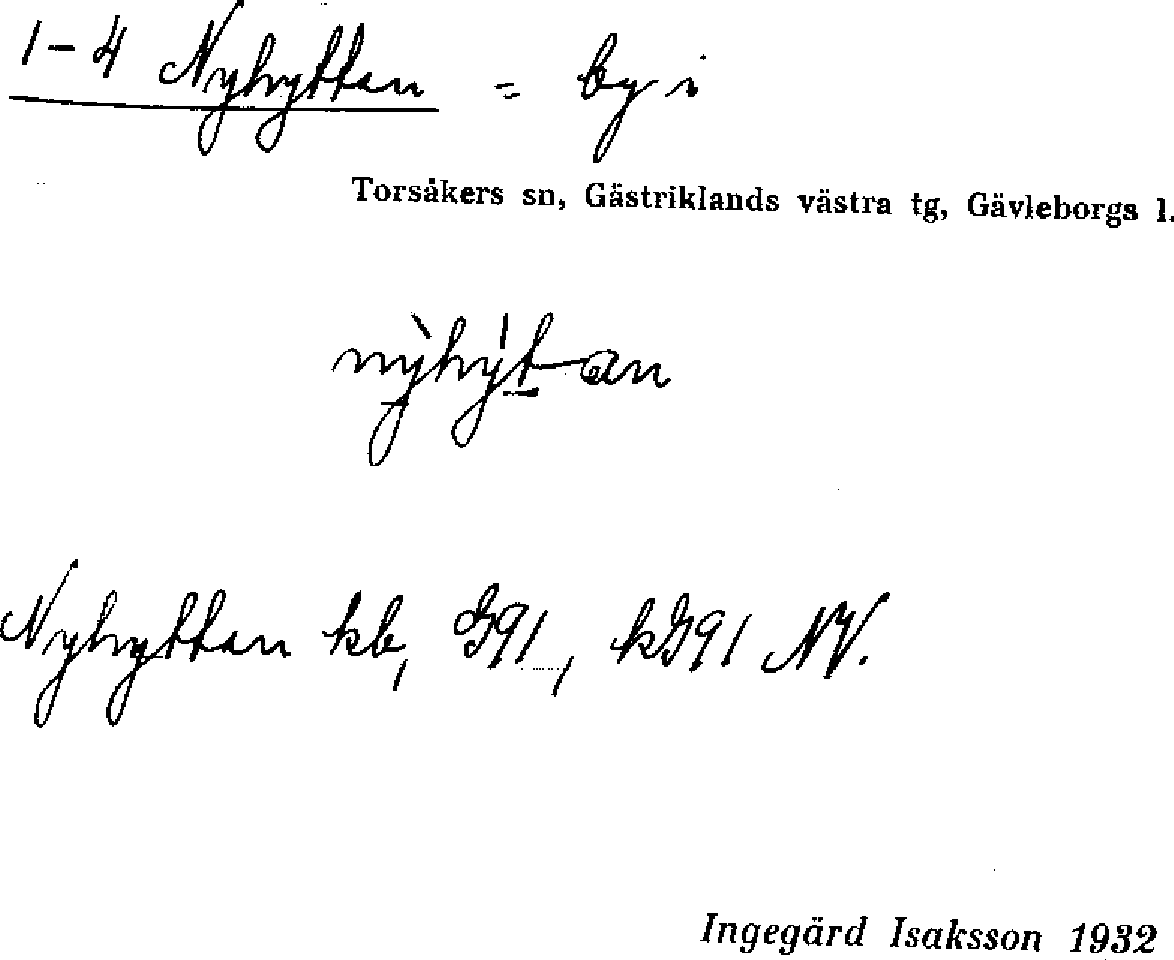 1-4 Nyhyttan = by i
Torsåkers sn, Gästriklands västra tg, Gävleborgs l.
nỳhýt an
Nyhyttan kb, G91, kG91 NV.
Ingegärd Isaksson 1932